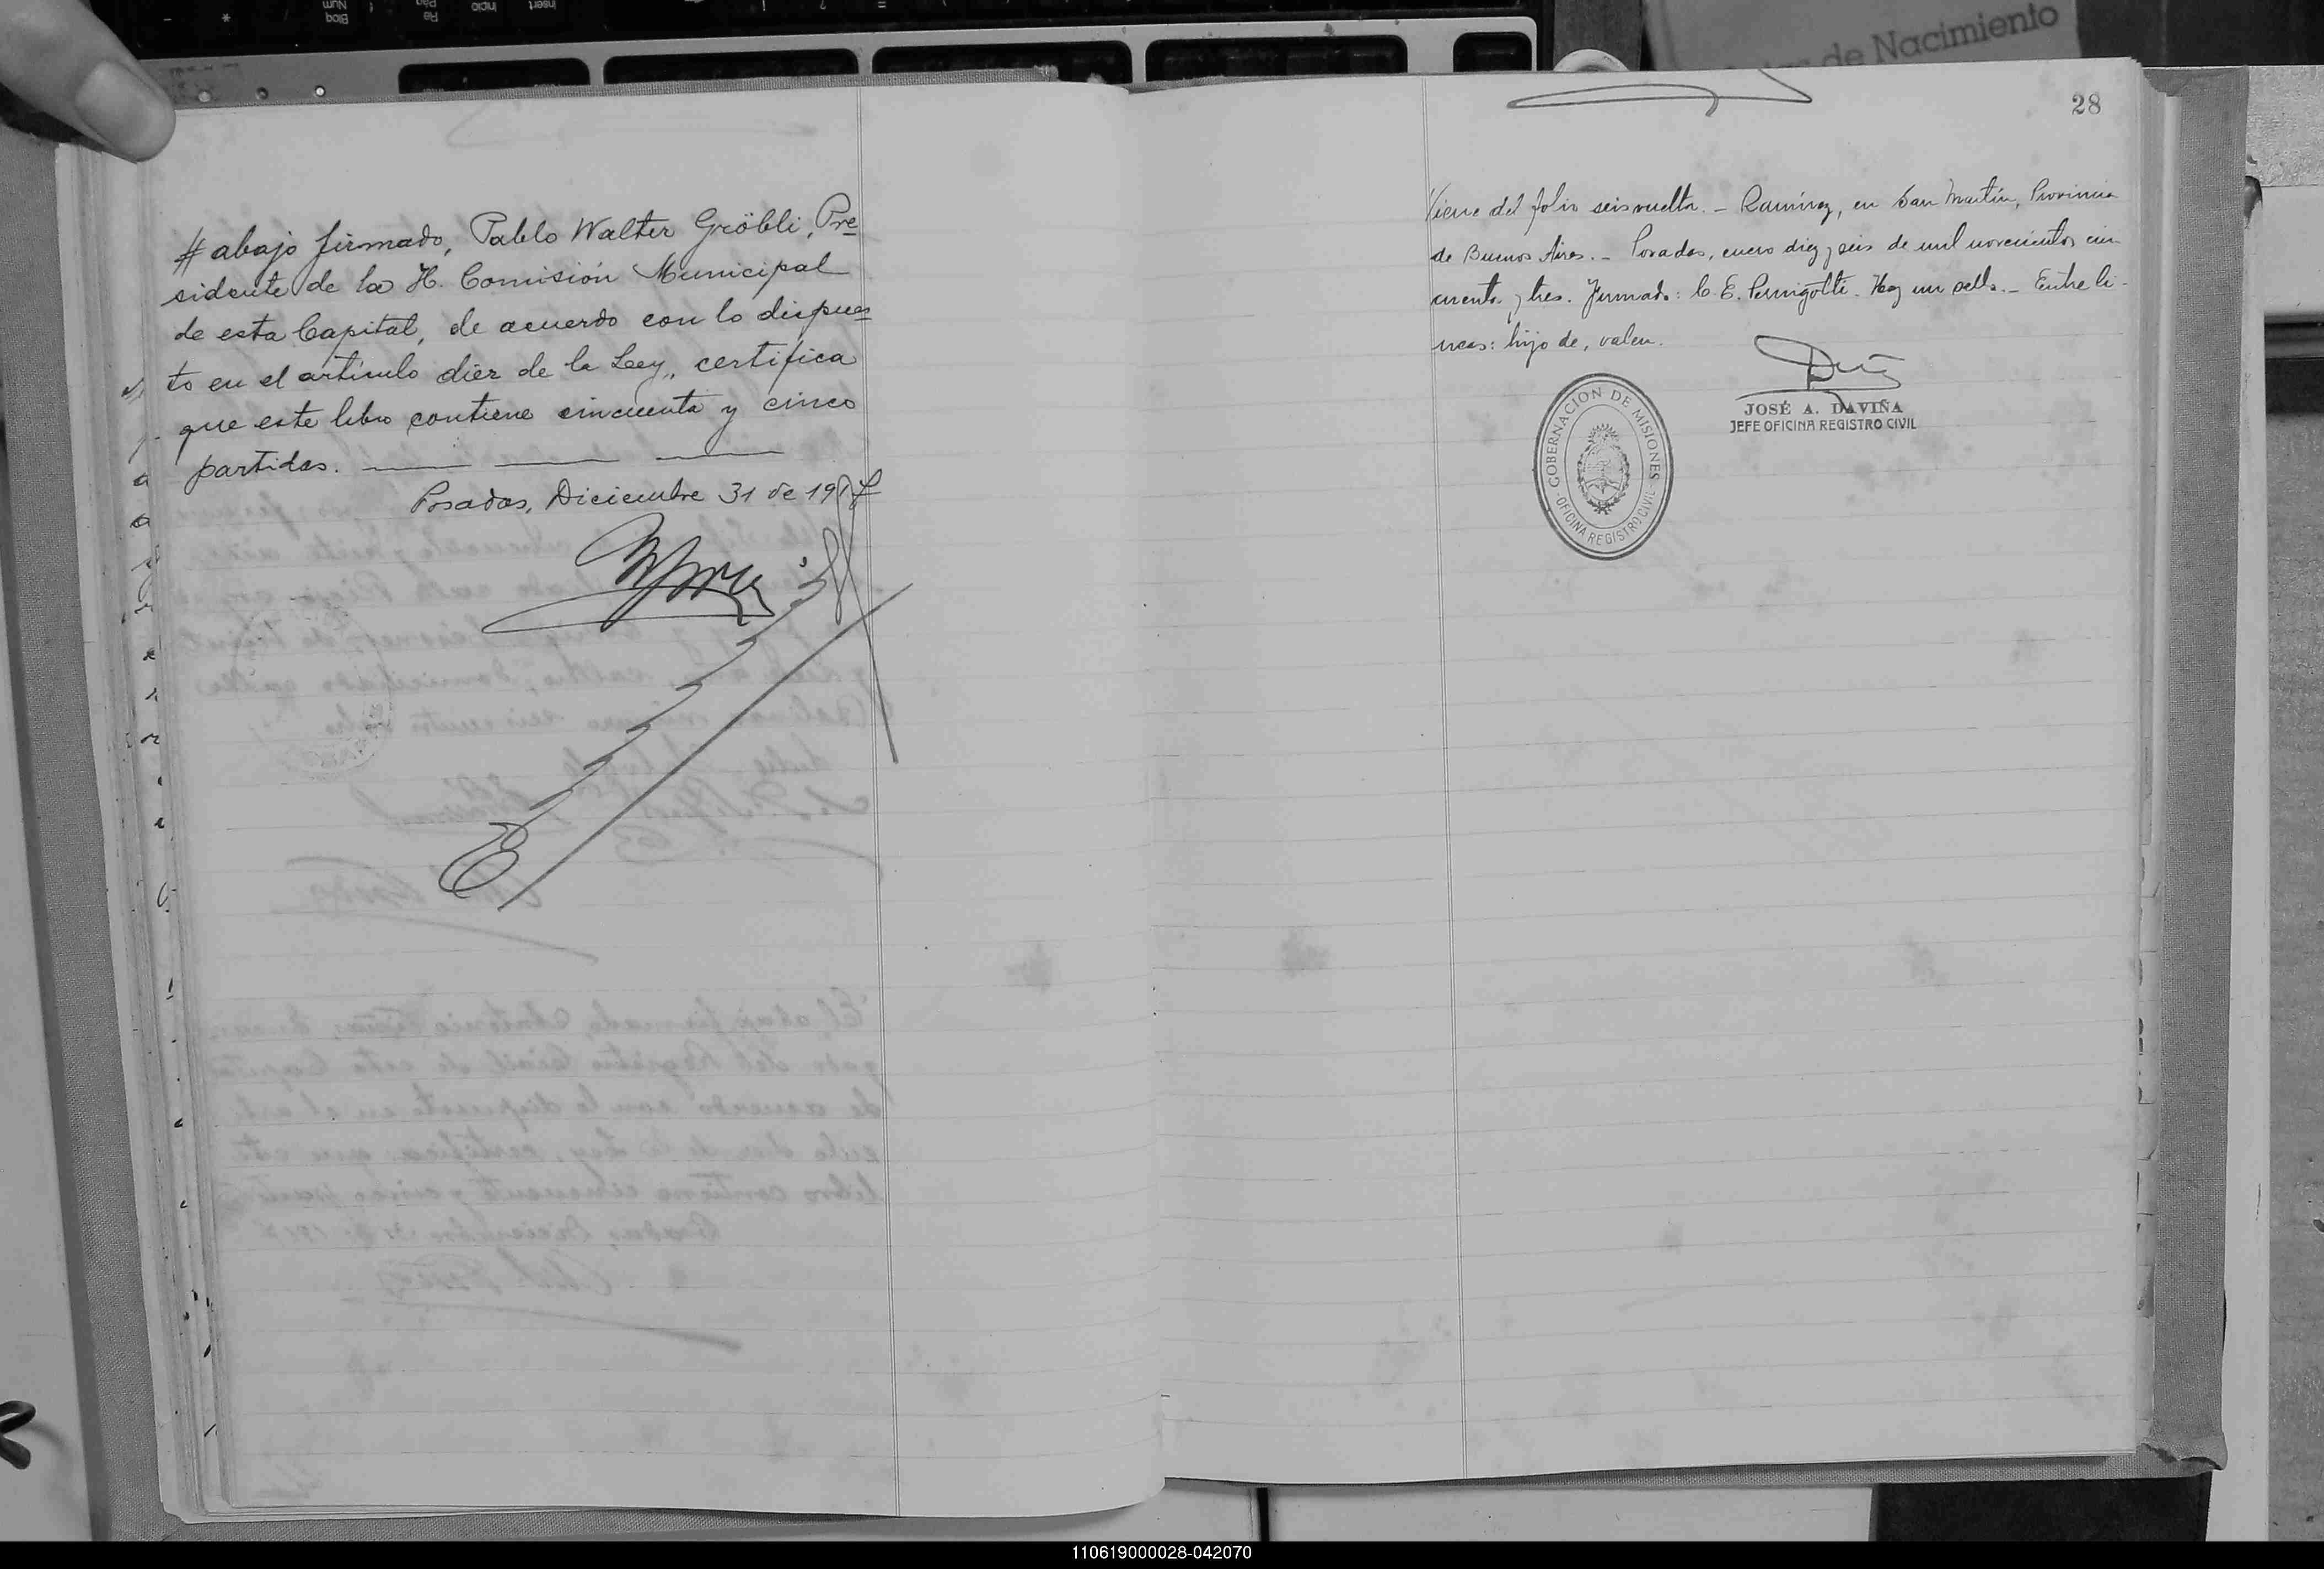 # abajo firmado, Pablo Walter Gröbli, Pre
sidente de la H. Comisión Municipal
de esta Capital, de acuerdo con lo dispues
to en el artículo diez de la Ley, certifica
que este libro contiene cincuenta y cinco
partidas.
Posadas, Diciembre 31 de 191
28
Viene del folio seis vuelta. - Ramírez, en San Martín, Provincia
de Buenos Aires. - Posadas, enero diez y seis de mil novecientos cin
cuenta y tres. Firmado: C. E. Pernigotti. Hay un sello. - Entre lí-
neas: hijo de, valen.
JOSÉ A. DAVIÑA
JEFE OFICINA REGISTRO CIVIL
GOBERNACION DE MISIONES
OFICINA REGISTRO CIVIL
de Nacimiento
Insert
Inicio
Re Pág
Bloq Num
110619000028-042070